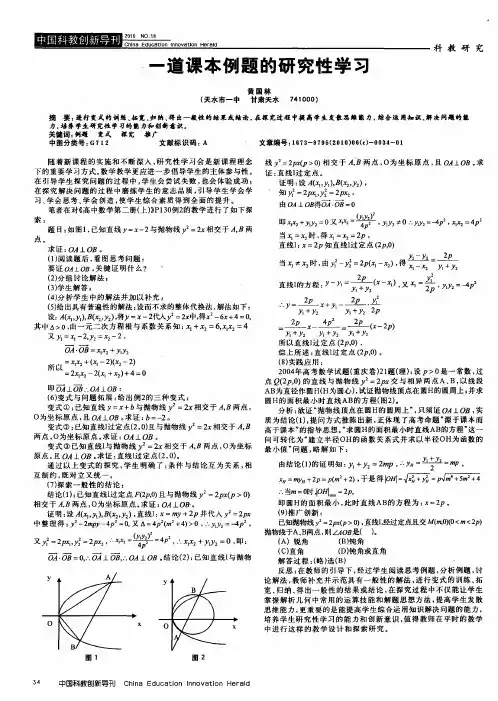 中国科教创新导刊
2010 NO.18
China Education Innovation Herald
科教研究
一道课本例题的研究性学习
黄国林
(天水市一中 甘肃天水 741000)
摘 要:进行变式的训练、拓宽、归纳、得出一般性的结果或结论,在探究过程中提高学生发散思维能力,综合运用知识、解决问题的能
力,培养学生研究性学习的能力和创新意识。
关键词:例题 变式 探究 推广
中图分类号:G712 文献标识码:A 文章编号:1673-9795(2010)06(c)-0034-01
随着新课程的实施和不断深入,研究性学习会是新课程理念
下的重要学习方式,数学教学更应进一步倡导学生的主体参与性,
在引导学生探究问题的过程中,学生会尝试失败,也会体验成功;
在探究解决问题的过程中磨练学生的意志品质,引导学生学会学
习、学会思考、学会创造,使学生综合素质得到全面的提升。
笔者在对《高中数学第二册(上)》P130例2的教学进行了如下探
索:
题目:如图1,已知直线y=x-2与抛物线y²=2x相交于A,B两
点。
求证:OA⊥OB。
(1)阅读题后,看图思考问题:
要证OA⊥OB,关键证明什么?
(2)分组讨论解法;
(3)学生解答;
(4)分析学生中的解法并加以补充;
(5)给出具有普遍性的解法:设而不求的整体代换法,解法如下:
设:A(x₁,y₁),B(x₂,y₂),将y=x-2代入y²=2x中,得x²-6x+4=0,
其中Δ>0,由一元二次方程根与系数关系知:x₁+x₂=6,x₁x₂=4
又y₁=x₁-2,y₂=x₂-2.
OA·OB=x₁x₂+y₁y₂
所以 =x₁x₂+(x₁-2)(x₂-2)
=2x₁x₂-2(x₁+x₂)+4=0
即OA⊥OB∴OA⊥OB;
(6)变式与问题拓展,给出例2的三种变式:
变式①:已知直线y=x+b与抛物线y²=2x相交于A,B两点,
O为坐标原点,且OA⊥OB,求证:b=-2。
变式②:已知直线l过定点(2,0)且与抛物线y²=2x相交于A,B
两点,O为坐标原点,求证:OA⊥OB。
变式③已知直线l与抛物线y²=2x相交于A,B两点,O为坐标
原点,且OA⊥OB,求证:直线l过定点(2,0)。
通过以上变式的探究,学生明确了:条件与结论互为关系,相
互制约,既对立又统一。
(7)探索一般性的结论:
结论(1):已知直线l过定点F(2p,0)且与抛物线y²=2px(p>0)
相交于A,B两点,O为坐标原点,求证:OA⊥OB。
证明:设A(x₁,y₁),B(x₂,y₂),直线l:x=my+2p并代入y²=2px
中整理得:y²-2mpy-4p²=0,又Δ=4p²(m²+4)>0,∴y₁y₂=-4p²,
又y₁²=2px₁,y₂²=2px₂,∴x₁x₂=(y₁y₂)²/4p²=4p²,∴x₁x₂+y₁y₂=0,即:
OA·OB=0,∴OA⊥OB,∴OA⊥OB,结论(2):已知直线l与抛物
y
A
O
x
B
图1
y
A
O
x
B
图2
线y²=2px(p>0)相交于A,B两点,O为坐标原点,且OA⊥OB,求
证:直线l过定点。
证明:设A(x₁,y₁),B(x₂,y₂),
知y₁²=2px₁,y₂²=2px₂,
由OA⊥OB得OA·OB=0
即x₁x₂+y₁y₂=0又x₁x₂=(y₁y₂)²/4p²,y₁y₂≠0∴y₁y₂=-4p²,x₁x₂=4p²
当x₁=x₂时,得x₁=x₂=2p.
直线l:x=2p知直线l过定点(2p,0)
当x₁≠x₂时,由y₁²-y₂²=2p(x₁-x₂),得(y₁-y₂)/(x₁-x₂)=2p/(y₁+y₂)
直线l的方程:y-y₁=2p/(y₁+y₂)(x-x₁),又x₁=y₁²/2p,y₁y₂=-4p²
∴y=2p/(y₁+y₂)x+y₁-2p/(y₁+y₂)·y₁²/2p
=2p/(y₁+y₂)x-4p²/(y₁+y₂)=2p/(y₁+y₂)(x-2p)
所以直线l过定点(2p,0).
综上所述:直线l过定点(2p,0)。
(8)实践应用:
2004年高考数学试题(重庆卷)21题(理),设p>0是一常数,过
点Q(2p,0)的直线与抛物线y²=2px交与相异两点A、B,以线段
AB为直径作圆H(H为圆心),试证抛物线顶点在圆H的圆周上;并求
圆H的面积最小时直线AB的方程(图2)。
分析:欲证“抛物线顶点在圆H的圆周上”,只须证OA⊥OB,实
质为结论(1),提问方式推陈出新,正体现了高考命题“源于课本而
高于课本”的指导思想。“求圆H的面积最小时直线AB的方程”这一
问可转化为“建立半径OH的函数关系式并求以半径OH为函数的
最小值”问题,略解如下:
由结论(1)的证明知:y₁+y₂=2mp,∴y_H=(y₁+y₂)/2=mp,
x_H=my_H+2p=p(m²+2),于是得|OH|=√(x_H²+y_H²)=p√(m⁴+5m²+4
∴当m=0时|OH|min=2p,
即圆H的面积最小,此时直线AB的方程为:x=2p。
(9)推广创新:
已知抛物线y²=2px(p>0),直线L经过定点且交M(m,0)(0<m<2p)
抛物线于A、B两点,则∠AOB是( )。
(A) 锐角 (B)钝角
(C)直角 (D)钝角或直角
解答过程:(略)选(B)
反思:在教师的引导下,经过学生阅读思考例题,分析例题,讨
论解法,教师补充并示范具有一般性的解法,进行变式的训练、拓
宽、归纳、得出一般性的结果或结论,在探究过程中不仅能让学生
掌握解析几何中常用的运算技能和解题思想方法,提高学生发散
思维能力,更重要的是能提高学生综合运用知识解决问题的能力,
培养学生研究性学习的能力和创新意识,值得教师在平时的教学
中进行这样的教学设计和探索研究。
34 中国科教创新导刊 China Education Innovation Herald